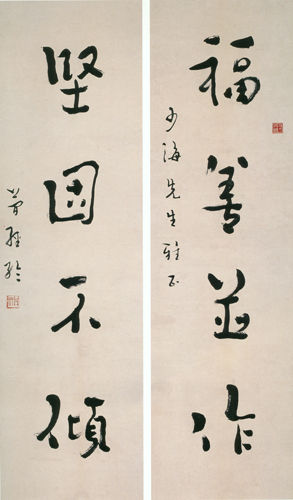 福善並作
少海先生雅正
堅固不傾
曾經